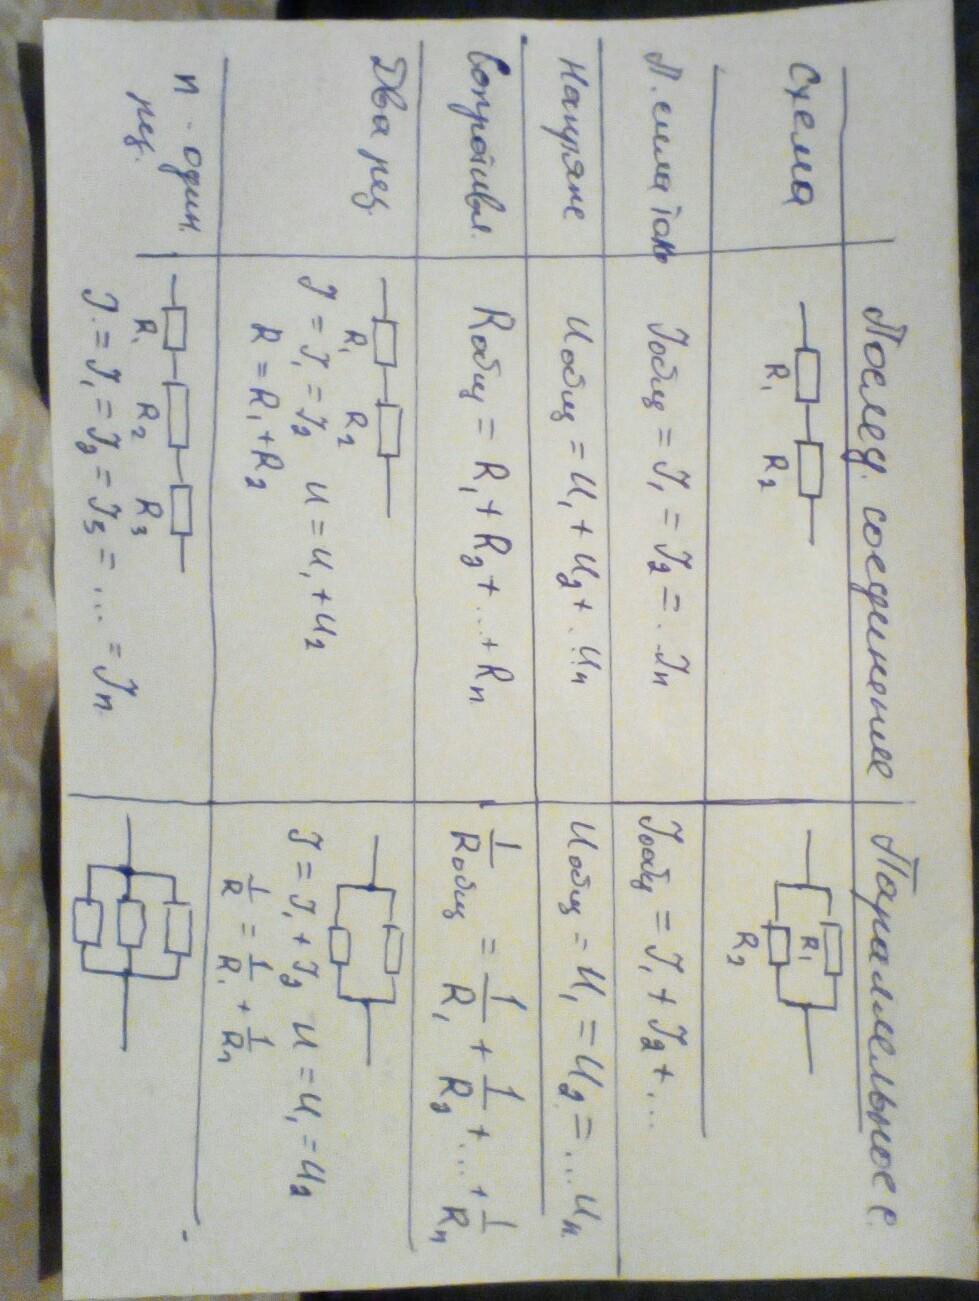 Послед. соединение Параллельное с.
Схема R₁ R₂ R₁ R₂
П. сила тока Iобщ = I₁ = I₂ = .. Iₙ Iобщ = I₁ + I₂ + ...
Напряже Uобщ = U₁ + U₂ + .. Uₙ Uобщ = U₁ = U₂ = ... Uₙ
Сопротивл. Rобщ = R₁ + R₂ + ... + Rₙ 1/Rобщ = 1/R₁ + 1/R₂ + ... + 1/Rₙ
Два рез.
R₁ R₂
I = I₁ = I₂ U = U₁ + U₂ I = I₁ + I₂ U = U₁ = U₂
R = R₁ + R₂ 1/R = 1/R₁ + 1/R₂
п. один.
рез.
R₁ R₂ R₃
I = I₁ = I₂ = I₃ = ... = Iₙ